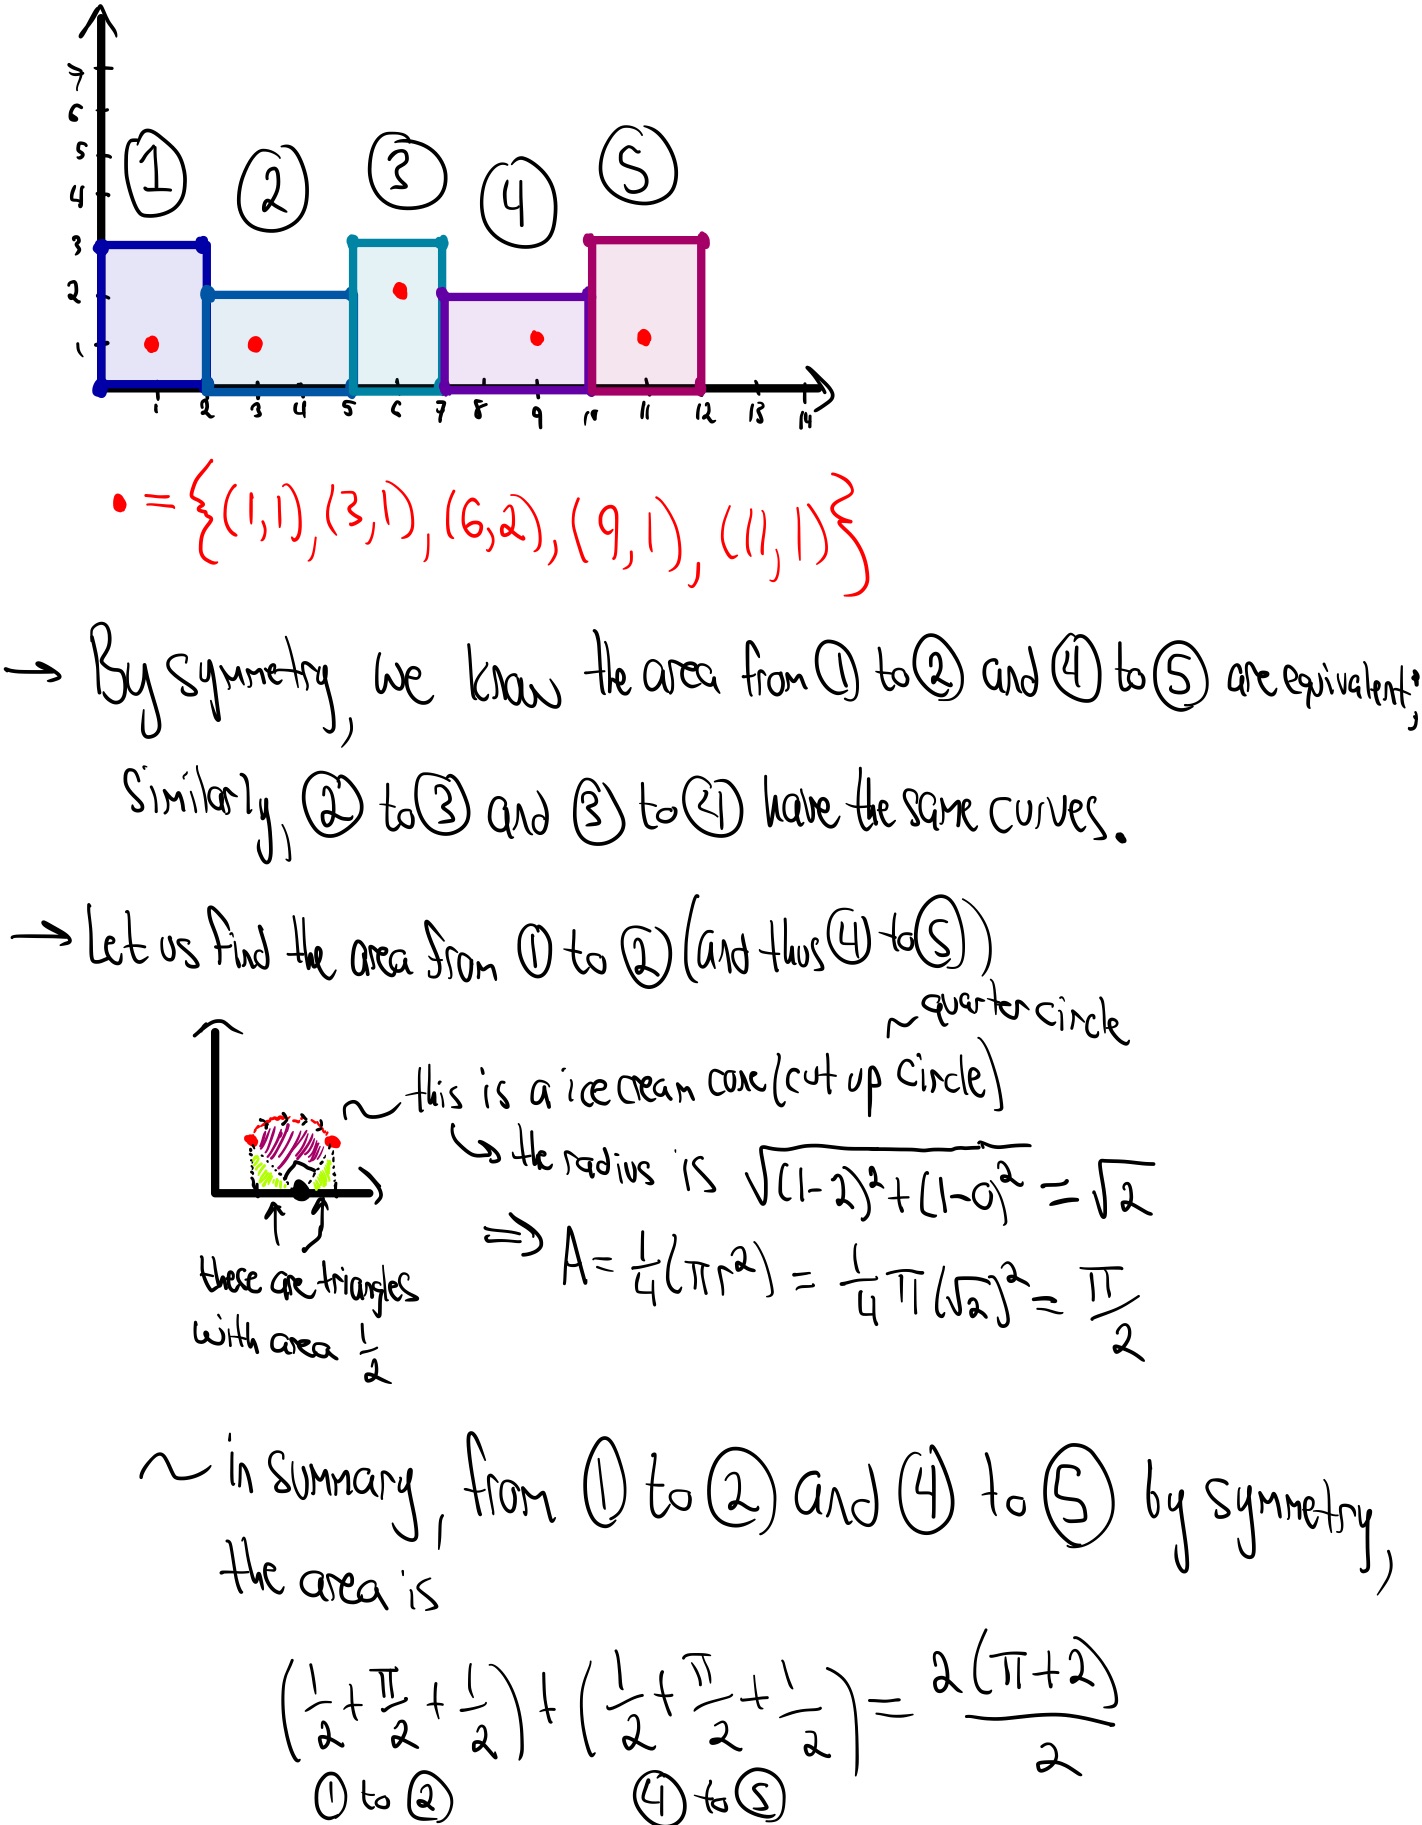 7
6
5
4
3
2
1
① ② ③ ④ ⑤
1 2 3 4 5 6 7 8 9 10 11 12 13 14
• = {(1,1),(3,1),(6,2),(9,1),(11,1)}
→ By symmetry, we know the area from ① to ② and ④ to ⑤ are equivalent;
Similarly, ② to ③ and ③ to ④ have the same curves.
→ Let us find the area from ① to ② (and thus ④ to ⑤)
~ quarter circle
~ this is a ice cream cone (cut up circle)
↳ the radius is √((1-2)²+(1-0)²) = √2
⇒ A = 1/4(πr²) = 1/4 π(√2)² = π/2
these are triangles
with area 1/2
~ in summary, from ① to ② and ④ to ⑤ by symmetry,
the area is
(1/2 + π/2 + 1/2) + (1/2 + π/2 + 1/2) = 2(π+2)/2
① to ② ④ to ⑤